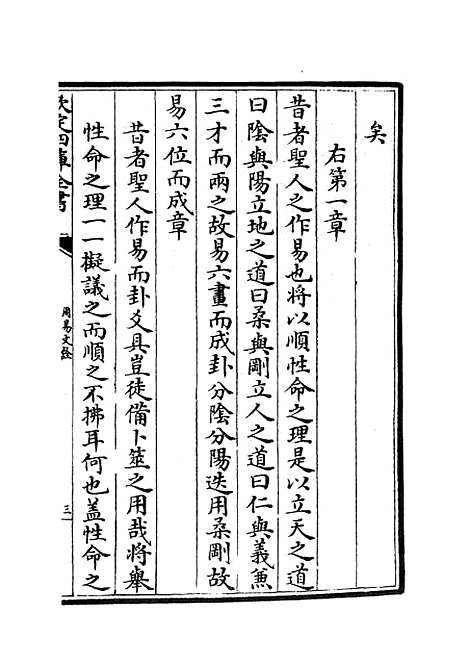 矣
右第一章
昔者聖人之作易也將以順性命之理是以立天之道
曰陰與陽立地之道曰柔與剛立人之道曰仁與義兼
三才而兩之故易六畫而成卦分陰分陽迭用柔剛故
易六位而成章
昔者聖人作易而卦爻具豈徒備卜筮之用哉將舉
性命之理一一擬議之而順之不拂耳何也蓋性命之
欽定四庫全書
周易文詮
三